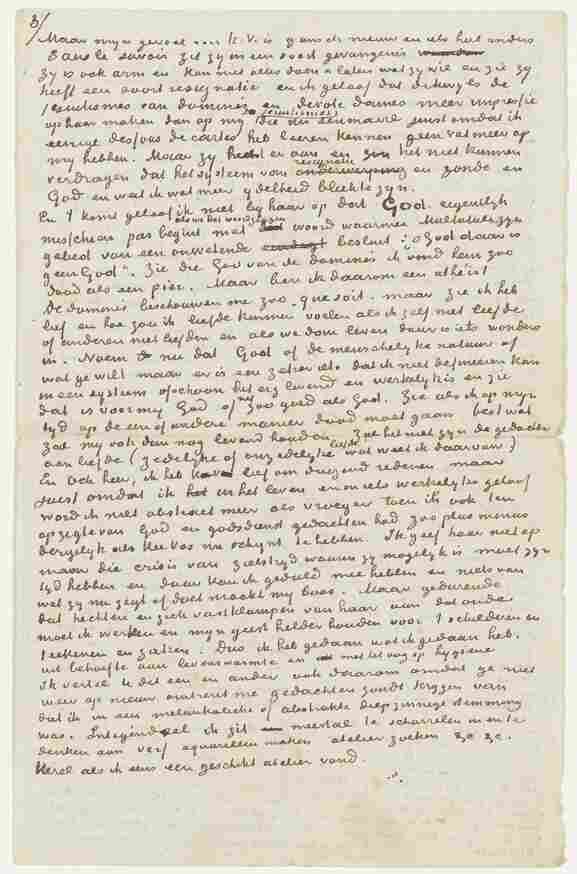 3/
Maar mijn gevoel .... K.V. is gansch nieuw en iets heel anders
Sans le savoir zit zij in een soort gevangenis
zij is ook arm en kan niet alles doen & laten wat zij wil en zie zij
heeft een soort resignatie en ik geloof dat
jesuitismes van dominees en devote dames meer impressie
op haar maken dan op mij jesuitismes die nu
juist omdat ik
eenige dessous de cartes heb leeren kennen geen vat meer op
mij hebben. Maar zij hecht er aan en zou het niet kunnen
verdragen dat het systeem van resignatie en zonde en
God en weet ik wat meer ijdelheid bleek te zijn.
En 't komt geloof ik niet bij haar op dat God eigentlijk
misschien pas begint als we het woord zeggen
gebed van een ongeloovige besluit: o God daar is
geen God". Zie die God van de dominees ik vind hem zoo
dood als een pier. Maar ben ik daarom een atheist
de dominés beschouwen me zoo - que soit - maar zie ik heb
lief en hoe zou ik liefde kunnen voelen als ik zelf niet leefde
of anderen niet leefden en als we dan leven daar is iets wonders
in. Noem dat nu God of de menschelijke natuur of
wat ge wilt maar er is een zeker iets dat ik niet definieeren kan
in een systeem ofschoon het erg levend en werkelijk is en zie
dat is voor mij God of zoo goed als God. Zie als ik op mijn
tijd op de een of andere manier dood moet gaan best wat
zal mij ook dan nog levend houden zal het niet zijn de gedachte
aan liefde (zedelijke of onzedelijke liefde wat weet ik daarvan)
En och heer, ik heb Kee lief om duizend redenen maar
juist omdat ik in het leven en in iets werkelijks geloof
word ik niet abstract meer als vroeger toen ik ook ten
opzigte van God en godsdienst gedachten had zoo plus minus
dergelijk als Kee Vos nu schijnt te hebben. Ik geef haar niet op
maar die crisis van zielstrijd waarin zij mogelijk is moet zijn
tijd hebben en daar kan ik geduld mee hebben en niets van
wat zij nu zegt of doet maakt mij boos. Maar gedurende
dat hechten en zich vastklampen van haar aan dat oude
moet ik werken en mijn geest helder houden voor 't schilderen en
teekenen en zaken. Dus ik heb gedaan wat ik gedaan heb
uit behoefte aan levenswarmte en met het oog op hygiene
Ik vertel U dit een en ander ook daarom omdat ge niet
weer op nieuw omtrent me gedachten zoudt krijgen van
dat ik in een melankolieke of abstrakte diepzinnige stemming
was. Integendeel ik zit meestal te scharrelen in en te
denken aan verf aquarellen maken atelier zoeken &c &c.
Kerel als ik eens een geschikt atelier vond.